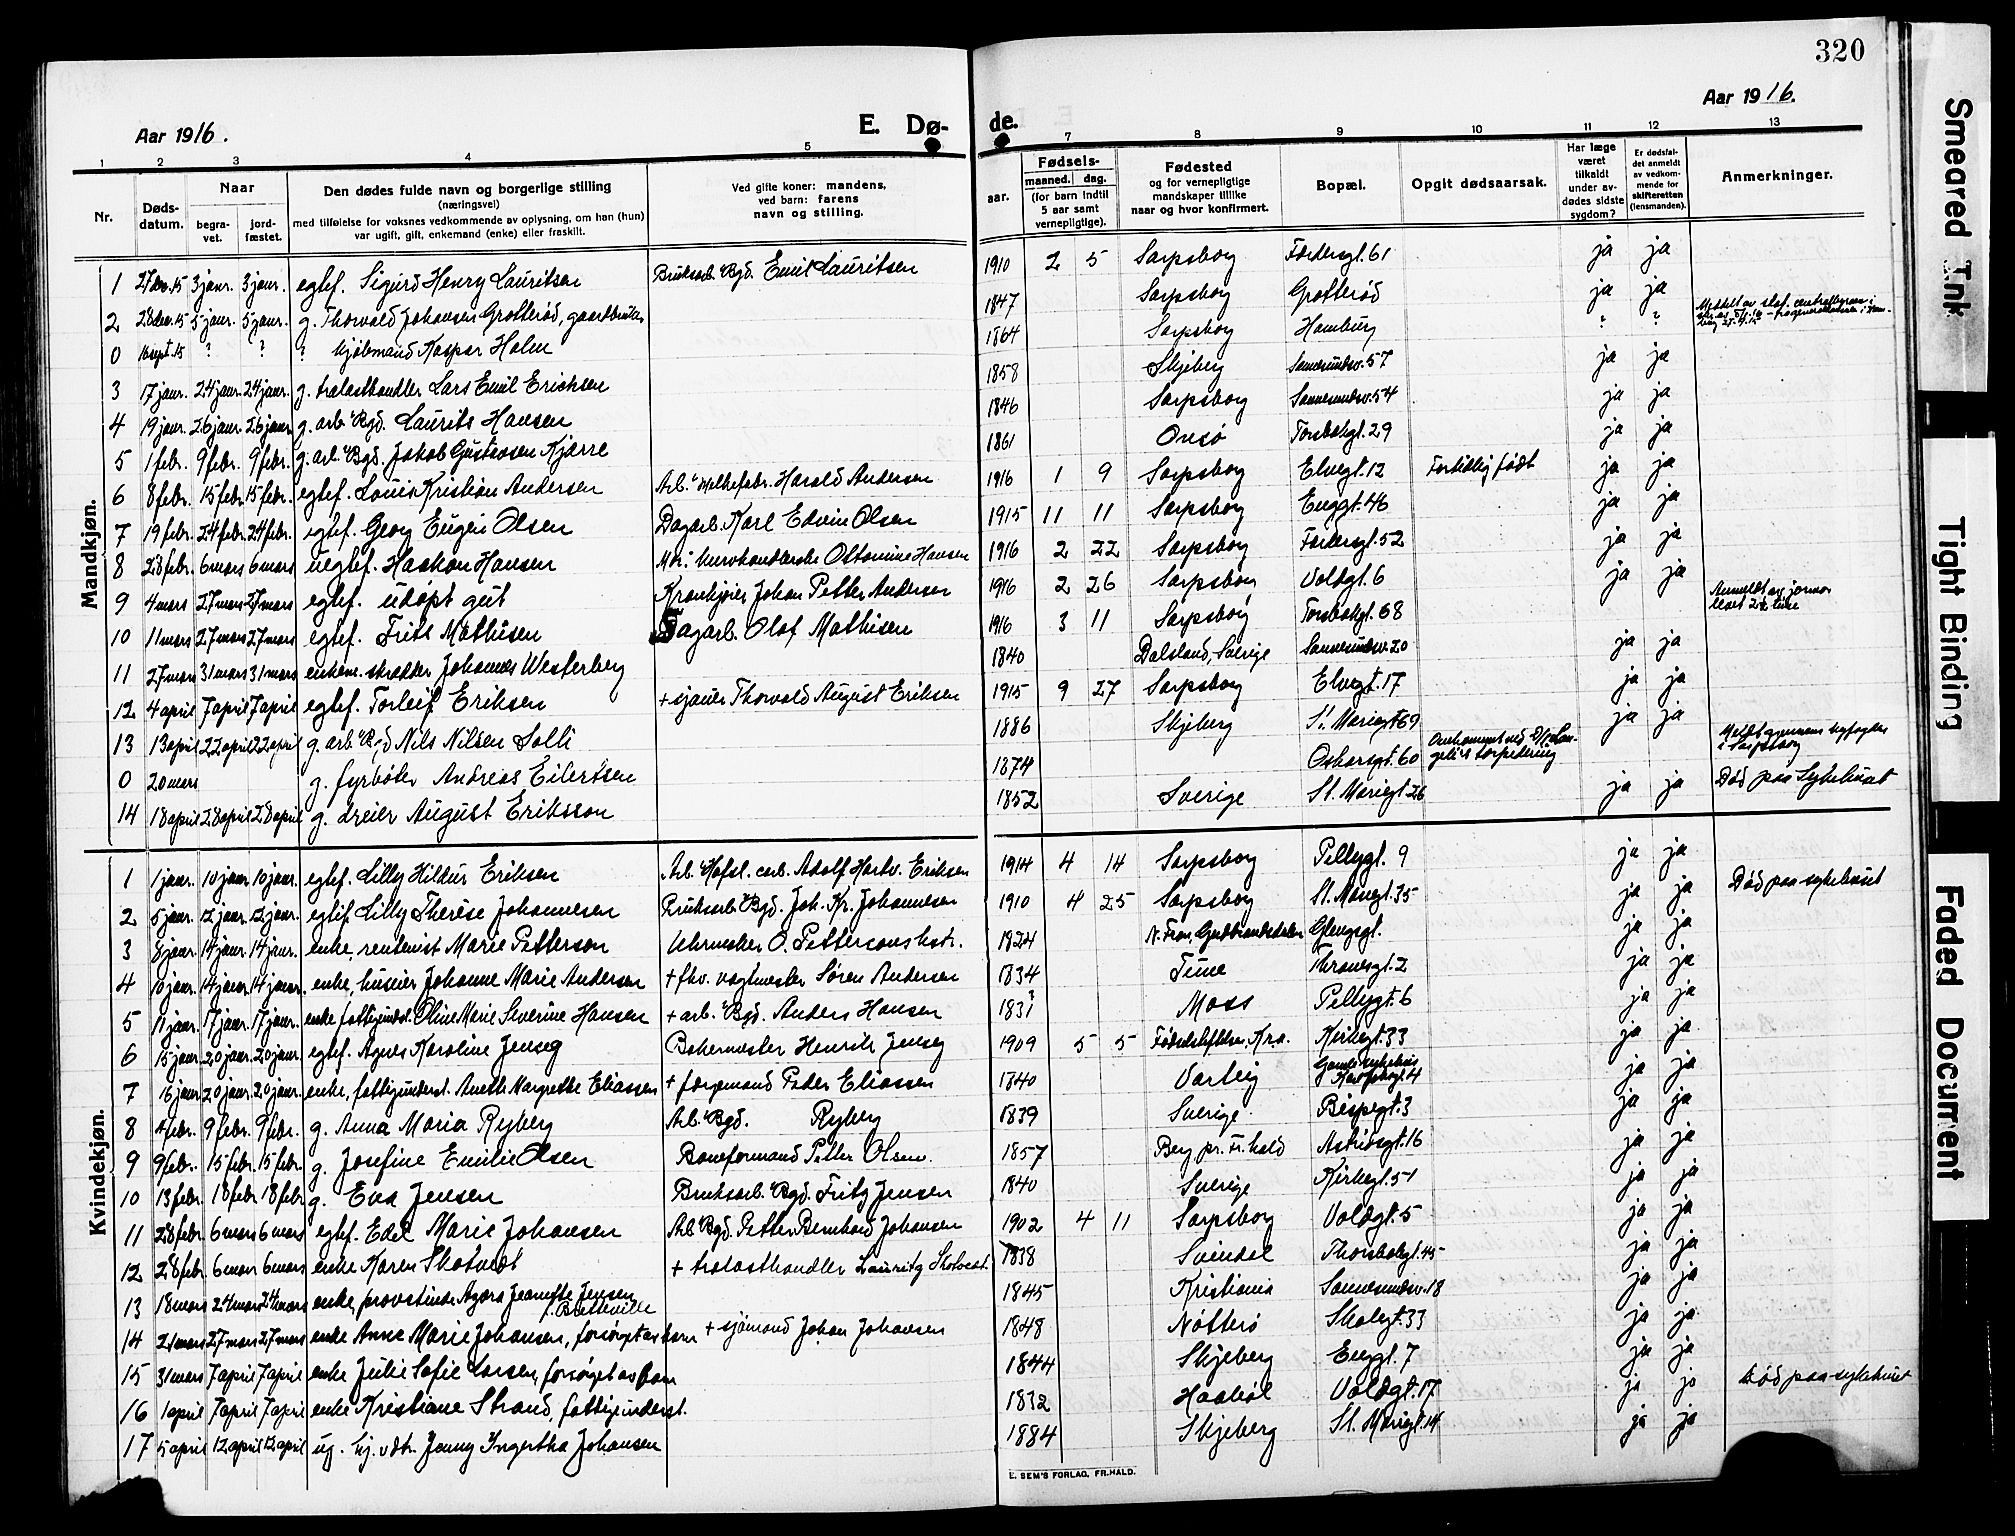 320
Aar 1916.
E. Dø-
de.
Aar 1916.
1 2 3 4 5 7 8 9 10 11 12 13
Nr.
Døds-
datum.
Naar
begra-
vet.
jord-
fæstet.
Den dødes fulde navn og borgerlige stilling
(næringsvei)
med tilføielse for voksnes vedkommende av oplysning, om han (hun)
var ugift, gift, enkemand (enke) eller fraskilt.
Ved gifte koner: mandens,
ved barn: farens
navn og stilling.
Fødsels-
aar.
maaned.
dag.
(for barn indtil
5 aar samt
vernepligtige).
Fødested
og for vernepligtige
mandskaper tillike
naar og hvor konfirmert.
Bopæl.
Opgit dødsaarsak.
Har læge
været
tilkaldt
under av-
dødes sidste
sygdom?
Er dødsfal-
det anmeldt
av vedkom-
mende for
skifteretten
(lensmanden).
Anmerkninger.
Mandkjøn.
1 27 des. 15 3 janr. 3 janr. egtef. Sigurd Henry Lauritsen Bruksarb. Bgd. Emil Lauritsen 1910 2 5 Sarpsborg Fordersgt. 61 ja ja
2 28 des. 15 5 janr. 5 janr. g. Thorvald Johansen Grotterød, gaardbruker 1847 Sarpsborg Grotterød ja ja
0 16 sept. 15 ? ? ? kjøbmand Kaspar Holm 1864 Sarpsborg Hamburg ? ?
3 17 janr. 24 janr. 24 janr. g. trælasthandler Lars Emil Erichsen 1858 Skjeberg Sannesundsv. 57 ja ja
4 19 janr. 26 janr. 26 janr. g. arb. Bgd. Laurits Hansen 1846 Sarpsborg Sannesundsv. 54 ja ja
5 1 febr. 9 febr. 9 febr. g. arb. Bgd. Jakob Gustavsen Kjærre 1861 Onsø Torsbekgt. 29 ja ja
6 8 febr. 15 febr. 15 febr. egtef. Louis Kristian Andersen Arb. Melkefabr. Harald Andersen 1916 1 9 Sarpsborg Elvegt. 12 Fortidlig født ja ja
7 19 febr. 24 febr. 24 febr. egtef. Georg Eugen Olsen Dagarb. Karl Edvin Olsen 1915 11 11 Sarpsborg Enggt. 46 ja ja
8 28 febr. 6 mars 6 mars uegtef. Haakon Hansen Mor: Kurvhandlerske Ottomine Hansen 1916 2 22 Sarpsborg Fordersgt. 52 ja ja
9 4 mars 27 mars 27 mars egtef. udøpt gut Krankjører Johan Petter Andersen 1916 2 26 Sarpsborg Voldgt. 6 ja ja
10 11 mars 27 mars 27 mars egtef. Frits Mathisen Dagarb. Olaf Mathisen 1916 3 11 Sarpsborg Torsbekgt. 68 Anmeldt av jormor
11 27 mars 31 mars 31 mars enkem. skrædder Johannes Westerberg 1840 Dalsland, Sverige Sannesundsv. 20 ja ja
12 4 april 7 april 7 april egtef. Torleif Eriksen + sjauer Thorvald August Eriksen 1915 9 27 Sarpsborg Elvegt. 17 ja ja
13 13 april 22 april 22 april g. arb. Bgd Nils Nilsen Solli 1886 Skjeberg St. Mariegt. 69 ja ja
0 20 mars g. fyrbøter Andreas Eilertsen 1874 Oskarsgt. 60 Omkommet ved D/S Lan-
gelis torpedering
i Sarpsborg
14 18 april 28 april 28 april g. dreier August Eriksson 1852 Sverige St. Mariegt. 26 ja ja Død paa Sykehuset
Kvindekjøn.
1 1 janr. 10 janr. 10 janr. egtef. Lilly Hildur Eriksen Arb. Hafsl. carb. Adolf Hartv. Eriksen 1914 4 14 Sarpsborg Pellygt. 9 ja ja
2 5 janr. 12 janr. 12 janr. egtef. Lilly Therese Johannesen Bruksarb. Bgd. Joh. Kr. Johannesen 1910 4 25 Sarpsborg St. Mariegt. 35 ja ja Død paa sykehuset
3 8 janr. 14 janr. 14 janr. enke, rentenist Marie Petterson Uhrmaker O. Pettersons kstr. 1824 N. Fron, Gudbrandsdalen Glengsgt. ja ja
4 10 janr. 14 janr. 14 janr. enke, huseier Johanne Marie Andersen + fhv. vagtmester Søren Andersen 1834 Tune Thranesgt. 2 ja ja
5 11 janr. 17 janr. 17 janr. enke fattigunderst. Oline Marie Severine Hansen + arb. Bgd. Anders Hansen 1831 Moss Pellygt. 6 ja ja
6 15 janr. 20 janr. 20 janr. egtef. Agnes Karoline Jenseg Bakermester Henrik Jenseg 1909 5 5 Fødselsstiftelsen, Kra. Kirkegt. 33 ja ja
7 16 janr. 20 janr. 20 janr. enke, fattigunderst. Anethe Margrethe Eliassen + færgemand Peder Eliassen 1840 Varteig Gamle sykehus
ja ja
8 4 febr. 9 febr. 9 febr. g. Anna Maria Ryberg Arb. Bgd. Ryberg 1839 Sverige Bispegt. 3 ja ja
9 9 febr. 15 febr. 15 febr. g. Josefine Emilie Olsen Baneformand Petter Olsen. 1857 Berg pr. Fr.hald Astridsgt. 16 ja ja
10 13 febr. 18 febr. 18 febr. g. Eva Jensen Bruksarb. Bgd. Fritz Jensen 1840 Sverige Kirkegt. 51 ja ja
11 28 febr. 6 mars 6 mars egtef. Edel Marie Johansen Arb. Bgd. Petter Bernhard Johansen 1902 4 11 Sarpsborg Voldgt. 5 ja ja
12 28 febr. 6 mars 6 mars enke Karen Skotvedt + trælasthandler Lauritz Skotvedt 1838 Svindal Thorsbekgt. 45 ja ja
13 18 mars 24 mars 24 mars enke, provstinde Agora Jeanette Jensen
f. Bretteville 1845 Kristiania Sannesundsv. 18 ja ja
14 21 mars 27 mars 27 mars enke Anne Marie Johansen, forsørget av barn + sjømand Johan Johansen 1848 Nøtterø Skolegt. 33 ja ja
15 31 mars 7 april 7 april enke Julie Sofie Larsen, forsørget av barn 1844 Skjeberg Enggt. 7 ja ja
16 1 april 7 april 7 april enke Kristiane Strand, fattigunderst. 1832 Haabøl Voldgt. 17 ja ja Død paa sykehuset
17 5 april 12 april 12 april ug. hj. v. dtr. Jenny Ingertha Johansen 1884 Skjeberg St. Mariegt. 14 ja ja
E. SEM'S FORLAG, FR.HALD.
Smeared Ink
Tight Binding
Faded Document